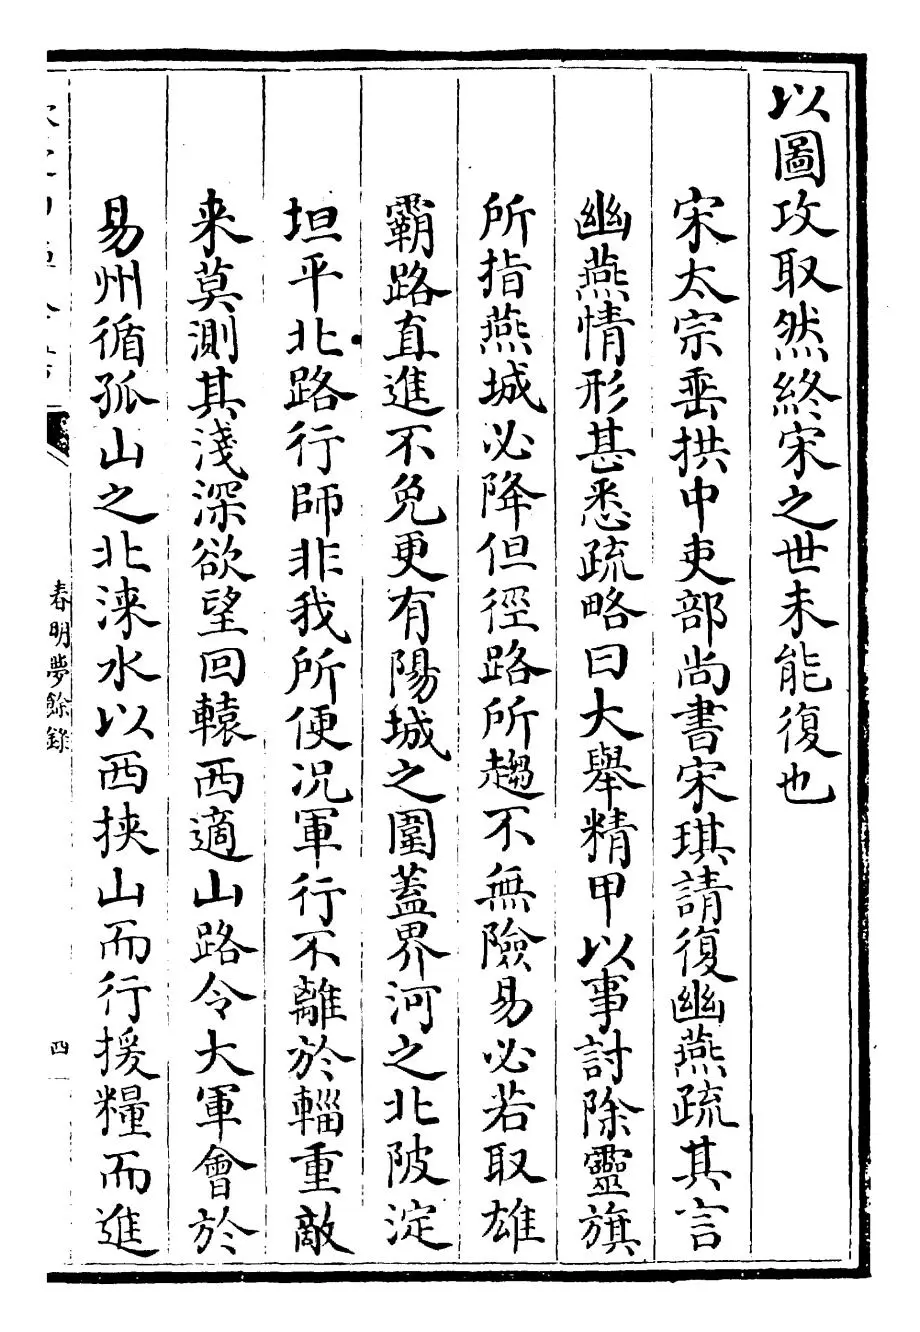 以圖攻取然終宋之世未能復也
宋太宗垂拱中吏部尚書宋琪請復幽燕疏其言
幽燕情形甚悉疏略曰大舉精甲以事討除靈旗
所指燕城必降但徑路所趨不無險易必若取雄
霸路直進不免更有陽城之圍蓋界河之北陂淀
坦平北路行師非我所便况軍行不離於輜重敵
来莫測其淺深欲望回轅西適山路令大軍會於
易州循孤山之北淶水以西挟山而行援糧而進
春明夢餘錄
四